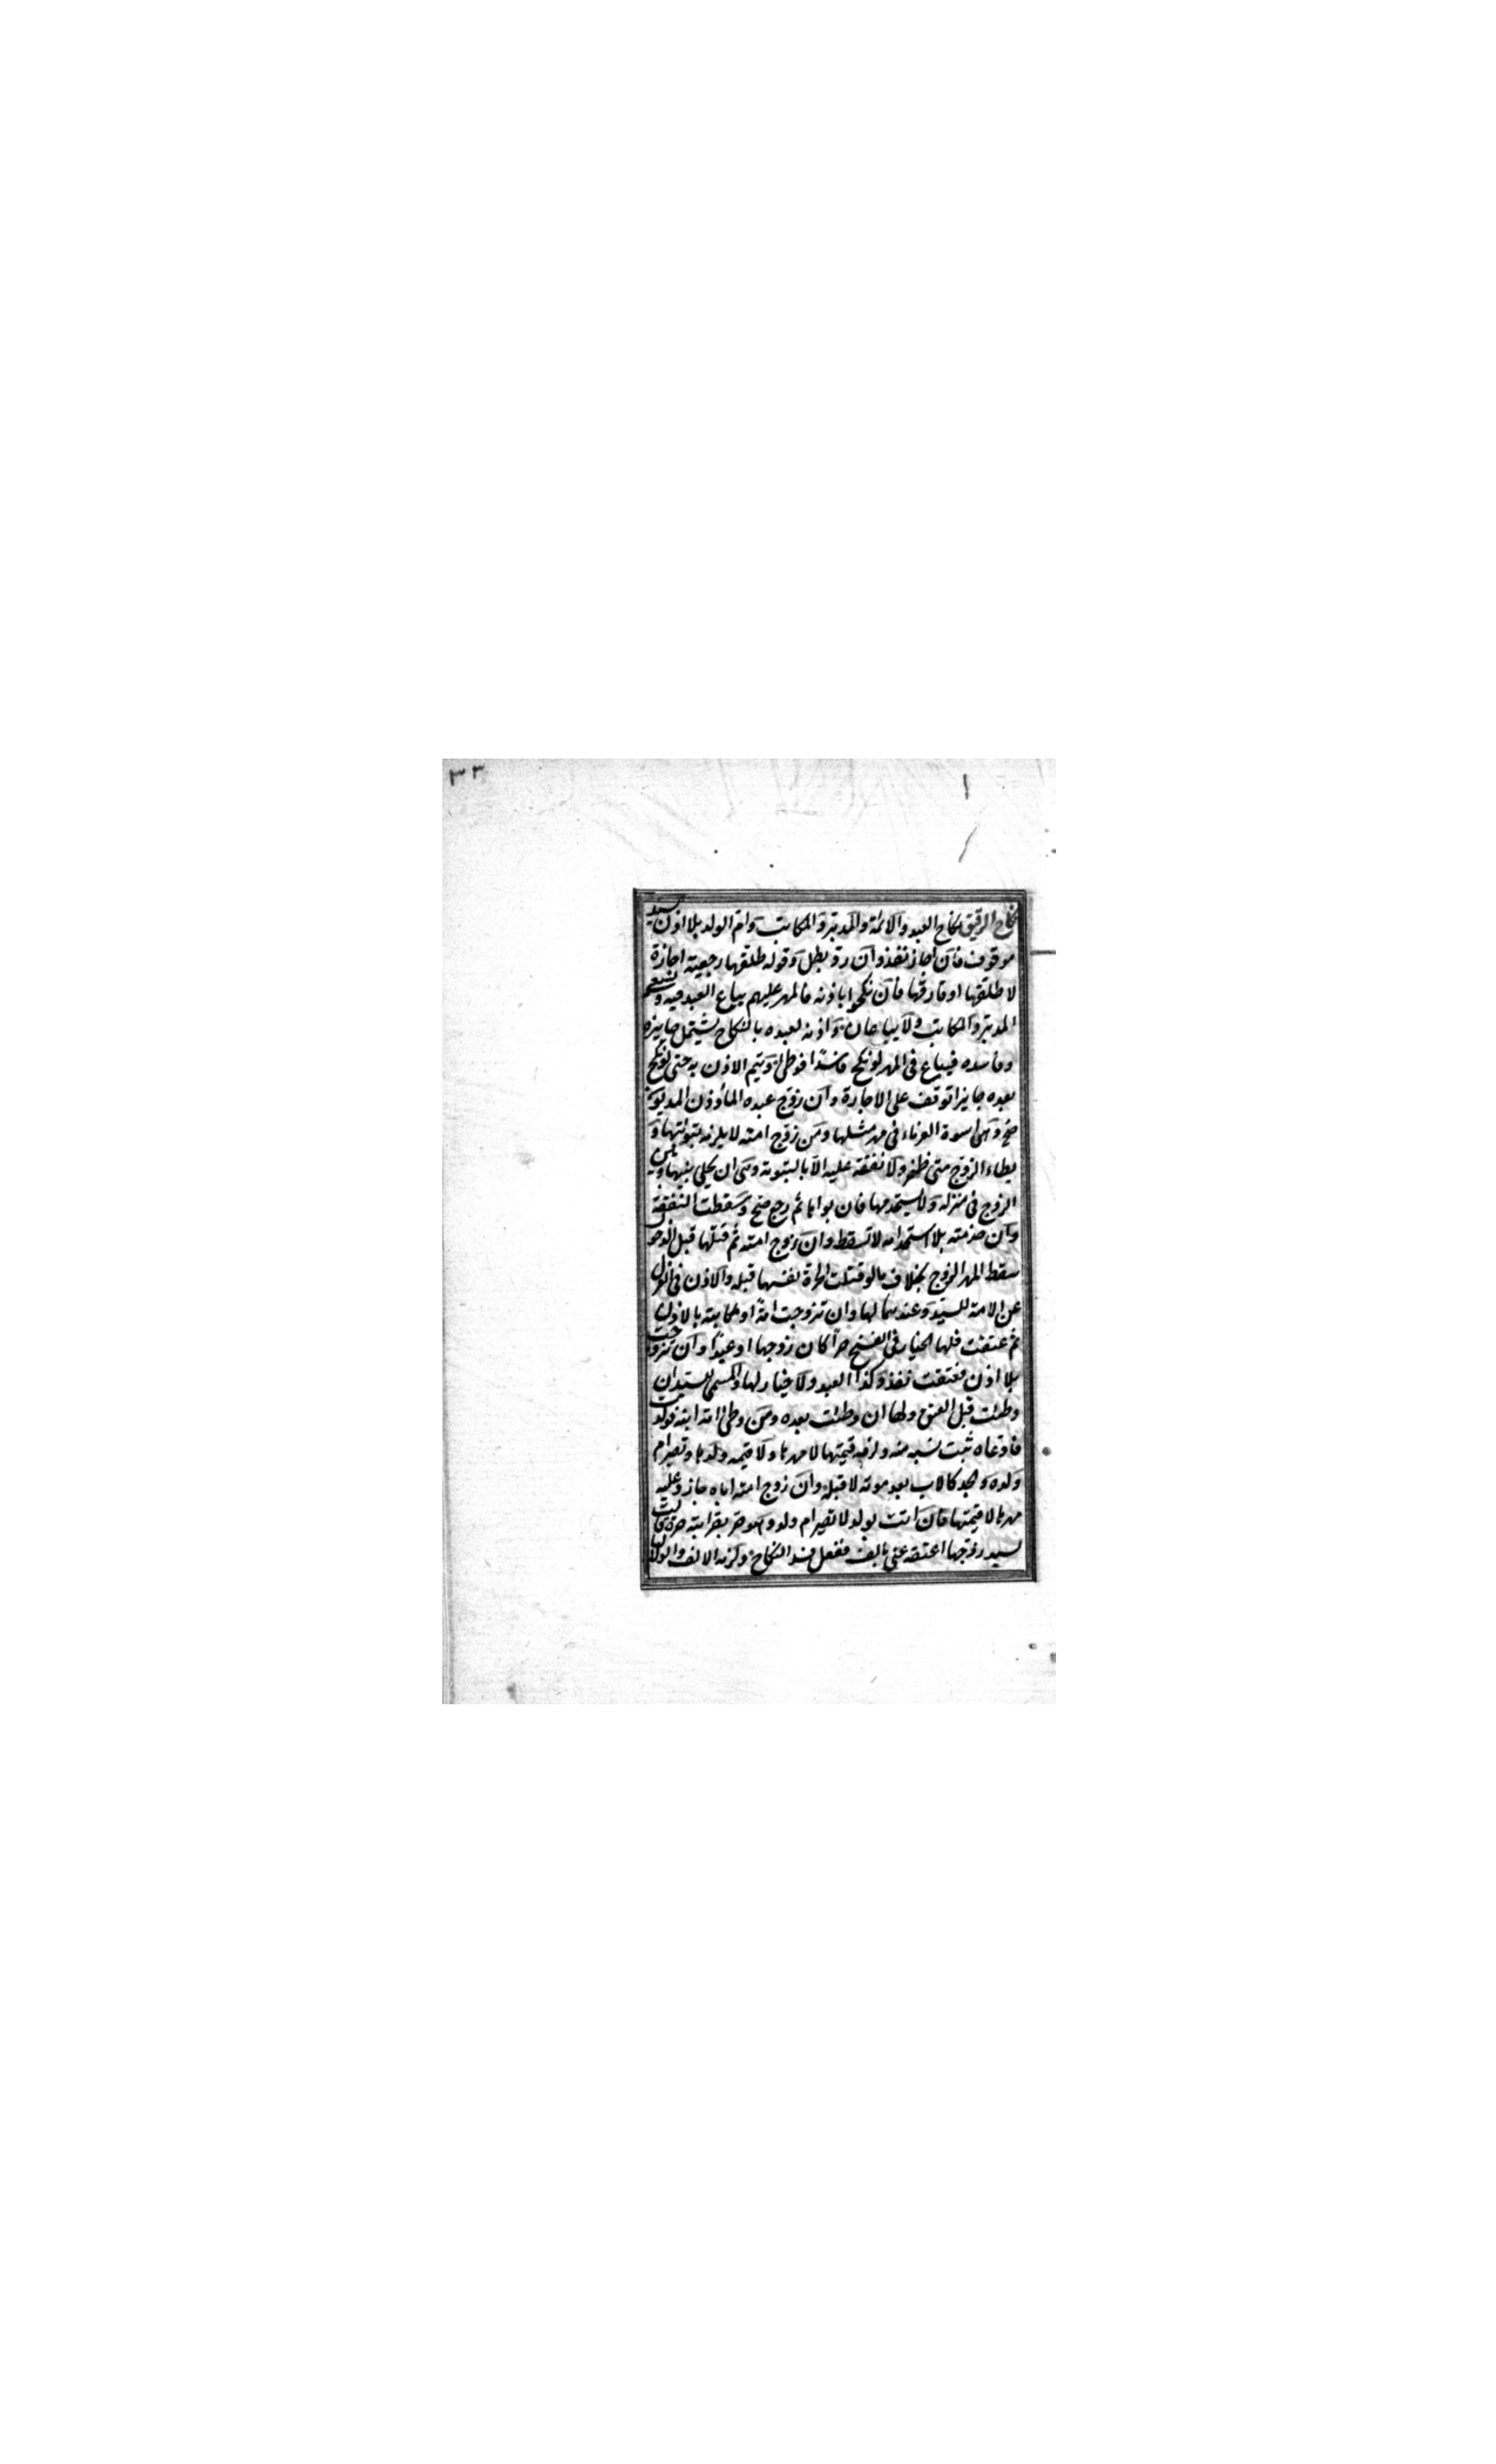 ٣٣
نكاح الرقيق نكاح العبد والامة والمدبر والمكاتب وام الولد بلا اذن سيد
موقوف فان اجاز نفذ وان رد بطل وقوله طلقها رجعية اجازة
لا طلقها او فارقها فان نكحوا باذنه فالمهر عليهم يباع العبد فيه ويسعى
المدبر والمكاتب ولا يباعان واذنه لعبده بالنكاح يشتمل جايزه
وفاسده فيباع في المهر لو نكح فاسدا فوطئ ويتم الاذن به حتى لو نكح
بعده جايزا توقف على الاجازة وان زوج عبده المأذون المديون
صح وهي اسوة الغرماء في مهر مثلها ومن زوج امته لا يلزمه تبوئتها و
يطاء الزوج متى ظفر ولا نفقة عليه الا بالتبوئة وهي ان يخلي بينها وبين
الزوج في منزله ولا يستخدمها فان بواها ثم رجع صح وسقطت النفقة
وان خدمته بلا استخدامه لا تسقط وان زوج امته ثم قتلها قبل الدخول
سقط المهر الزوج بخلاف ما لو قتلت الحرة نفسها قبله والاذن في العزل
عن الامة للسيد وعندهما لها وان تزوجت امة او مكاتبة بالاذن
ثم عتقت فلها الخيار في الفسخ حرا كان زوجها او عبدا وان تزوجت
بلا اذن فعتقت نفذ وكذا العبد ولا خيار لها والمسمى للسيد ان
وطئت قبل العتق ولها ان وطئت بعده ومن وطئ امة ابنه فولدت
فادعاه ثبت نسبه منه ولزمه قيمتها لا مهرها ولا قيمة ولدها وتصير ام
ولده والجد كالاب بعد موته لا قبله وان زوج امته اباه جاز وعليه
مهرها لا قيمتها فان اتت بولد لا تصير ام ولد وهو حر بقرابته حرة قالت
لسيد زوجها اعتقه عني بالف ففعل فسد النكاح ولزمه الالف والولاء